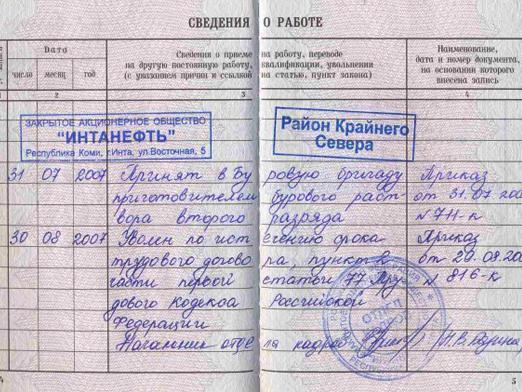 СВЕДЕНИЯ О РАБОТЕ
Дата
число месяц год
Сведения о приеме на работу, переводе
на другую постоянную работу, квалификации, увольнении
(с указанием причин и ссылкой на статью, пункт закона)
Наименование,
дата и номер документа,
на основании которого
внесена запись
1 2 3 4
ЗАКРЫТОЕ АКЦИОНЕРНОЕ ОБЩЕСТВО
"ИНТАНЕФТЬ"
Республика Коми, г.Инта, ул.Восточная, 5
Район Крайнего
Севера
31 07 2007 Принят в буровую бригаду Приказ
приготовителем бурового раст- от 31.07.200
вора второго разряда №711-к
30 08 2007 Уволен по истечению срока Приказ
трудового договора, пункт 2 от 29.08.20
части первой статьи 77 Тру- № 816-к
дового Кодекса Российской
Федерации
Начальник отдела кадров